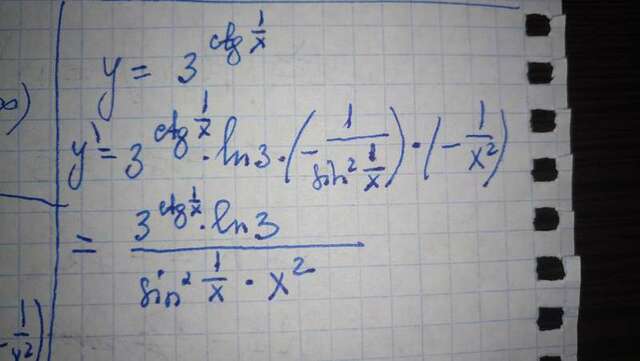 y = 3^{ctg \frac{1}{x}}
∞)
y' = 3^{ctg \frac{1}{x}} · ln3 · (-\frac{1}{sin^2 \frac{1}{x}}) · (-\frac{1}{x^2})
= \frac{3^{ctg \frac{1}{x}} · ln3}{sin^2 \frac{1}{x} · x^2}
-\frac{1}{x^2})